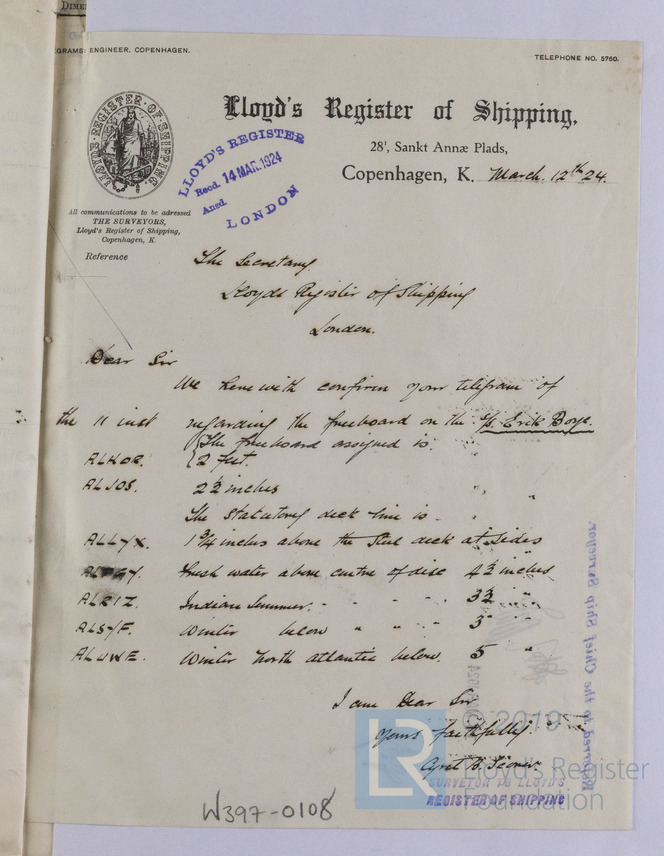 DIME
GRAMS: ENGINEER, COPENHAGEN.
TELEPHONE NO. 5760.
LLOYD'S REGISTER OF SHIPPING
Lloyd's Register of Shipping,
28', Sankt Annæ Plads,
Copenhagen, K. March. 12th 24.
LLOYD'S REGISTER
Recd. 14 MAR. 1924
Ansd.
LONDON
All communications to be adressed
THE SURVEYORS,
Lloyd's Register of Shipping,
Copenhagen, K.
Reference
The Secretary
Lloyds Register of Shipping
London.
Dear Sir
We herewith confirm your telegram of
the 11 inst regarding the freeboard on the Erik Boye.
The freeboard assigned is.
ALHOR. 2 feet.
ALJOS. 2½ inches "
The statutory deck line is
ALLYX. 1¾ inches above the steel deck at sides
Fresh water above centre of disc 4½ inches
ALRIZ. Indian Summer. " " " 3½ "
ALSYF. Winter below " " " 3 "
ALUWE. Winter North atlantic below. 5 "
I am Dear Sir
Yours faithfully.
SURVEYOR TO LLOYD'S
REGISTER OF SHIPPING
Referred to the Chief Ship Surveyor.
W397-0108
LR
© 2019
Lloyd's Register
Foundation